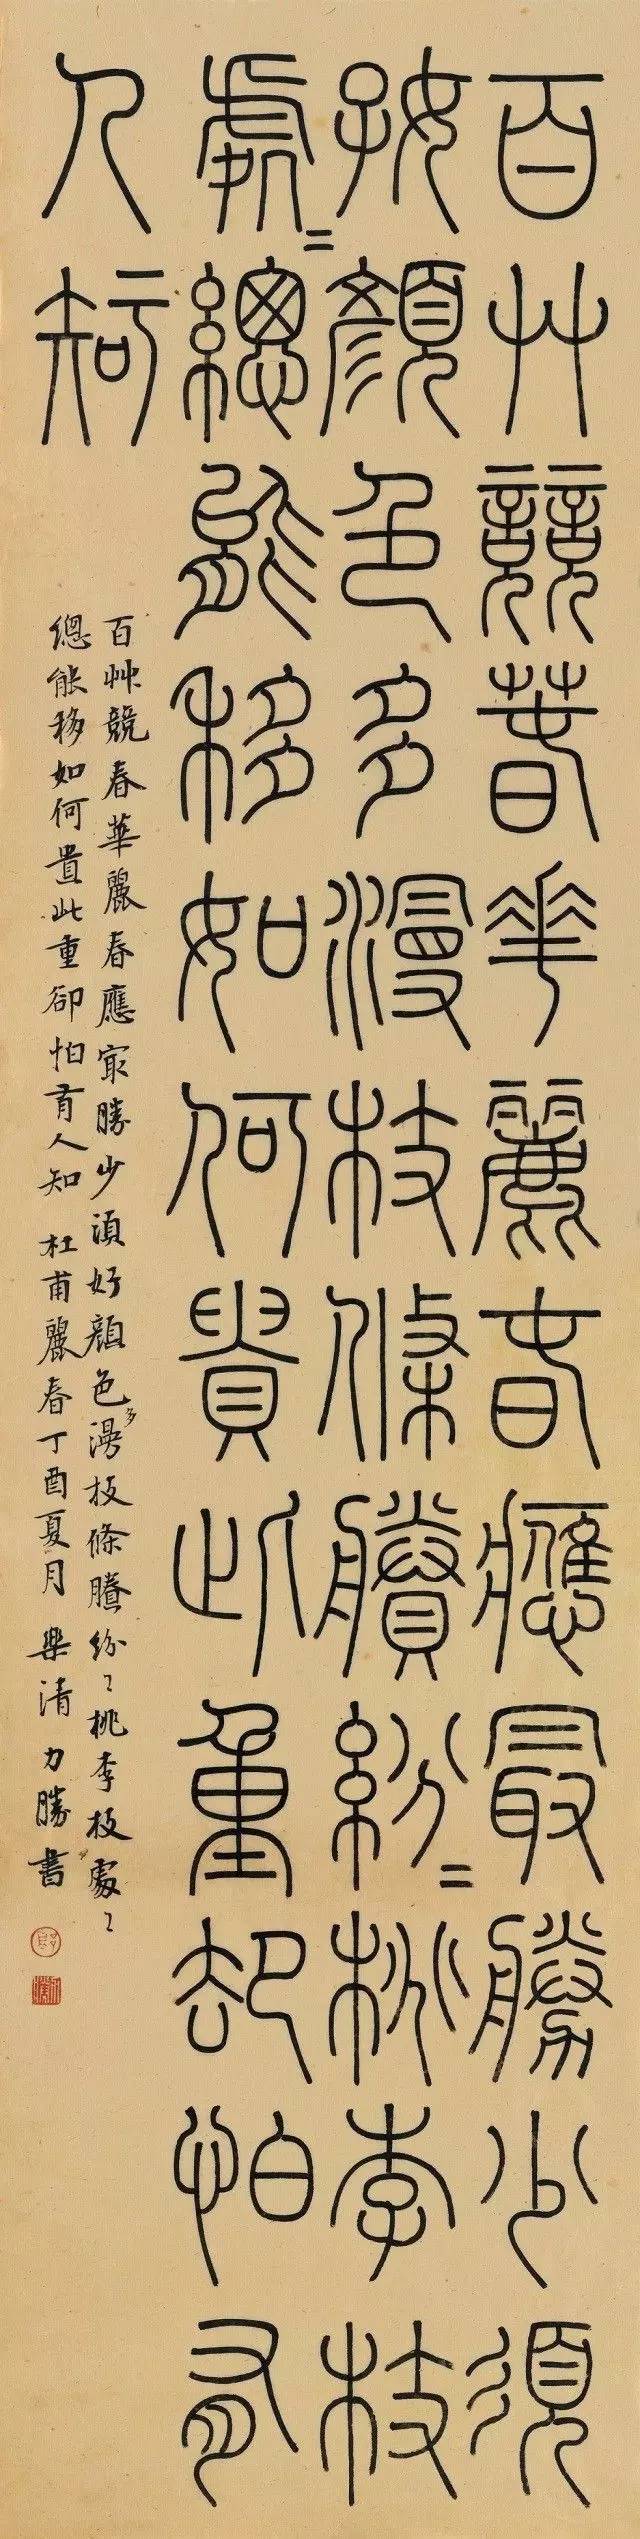 百艸競春華麗春應最勝少須
好顏色多漫枝條賸紛〻桃李枝
處〻總能移如何貴此重却怕有
人知
百艸競春華麗春應最勝少須好顏色多漫枝條賸紛〻桃李枝處〻
總能移如何貴此重卻怕有人知 杜甫麗春丁酉夏月 樂清力勝書